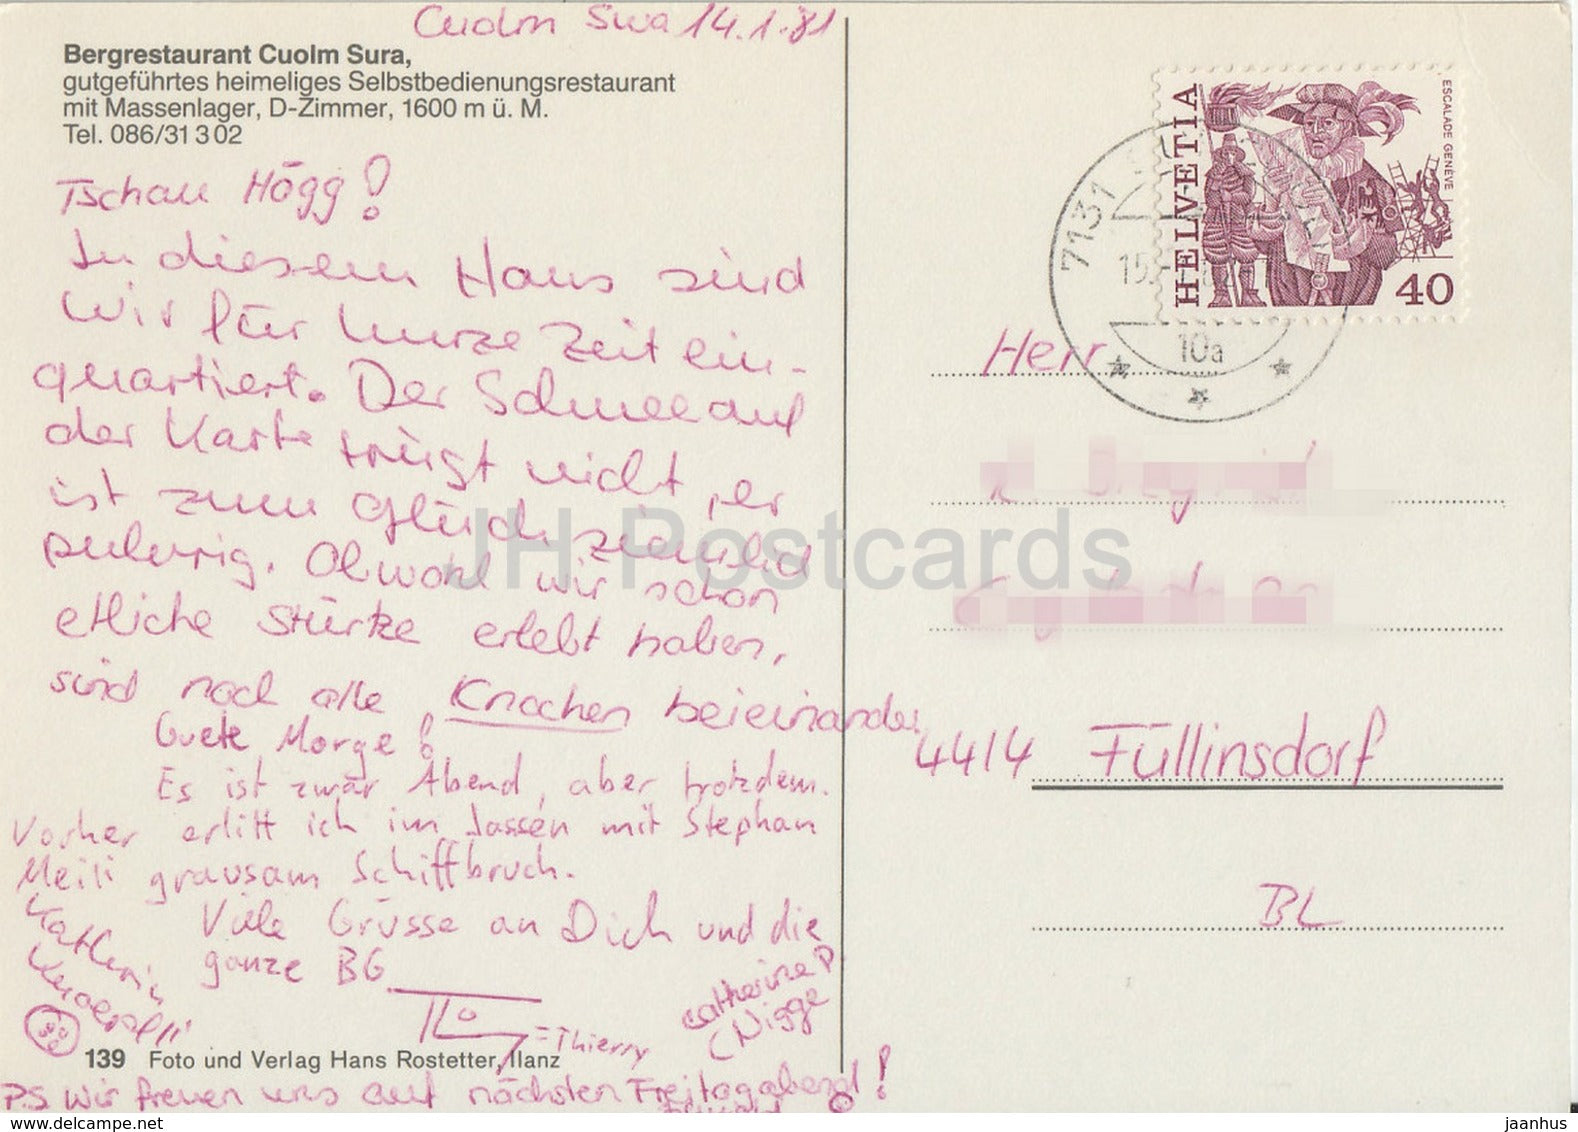 Cuolm Sura 14.1.81
Bergrestaurant Cuolm Sura,
gutgeführtes heimeliges Selbstbedienungsrestaurant
mit Massenlager, D-Zimmer, 1600 m ü. M.
Tel. 086/31 3 02
Tschau Högg!
In diesem Haus sind
wir für kurze Zeit ein-
quartiert. Der Schnee auf
der Karte trügt nicht, er
ist zum Glück ziemlich
pulvrig. Obwohl wir schon
etliche Stürze erlebt haben,
sind noch alle Knochen beieinander
Guete Morge!
Es ist zwar Abend, aber trotzdem.
Vorher erlitt ich im Jassen mit Stephan
Meili grausam Schiffbruch.
Viele Grüsse an Dich und die
ganze BG
Kathrin
=Thierry
Catherine P.
(Nigge
139 Foto und Verlag Hans Rostetter, Ilanz
P.S. Wir freuen uns auf nächsten Freitagabend!
HELVETIA
ESCALADE GENÈVE
40
7131
15.
10a
Herr
4414 Füllinsdorf
BL
JH Postcards
delcampe.net
jaanhus